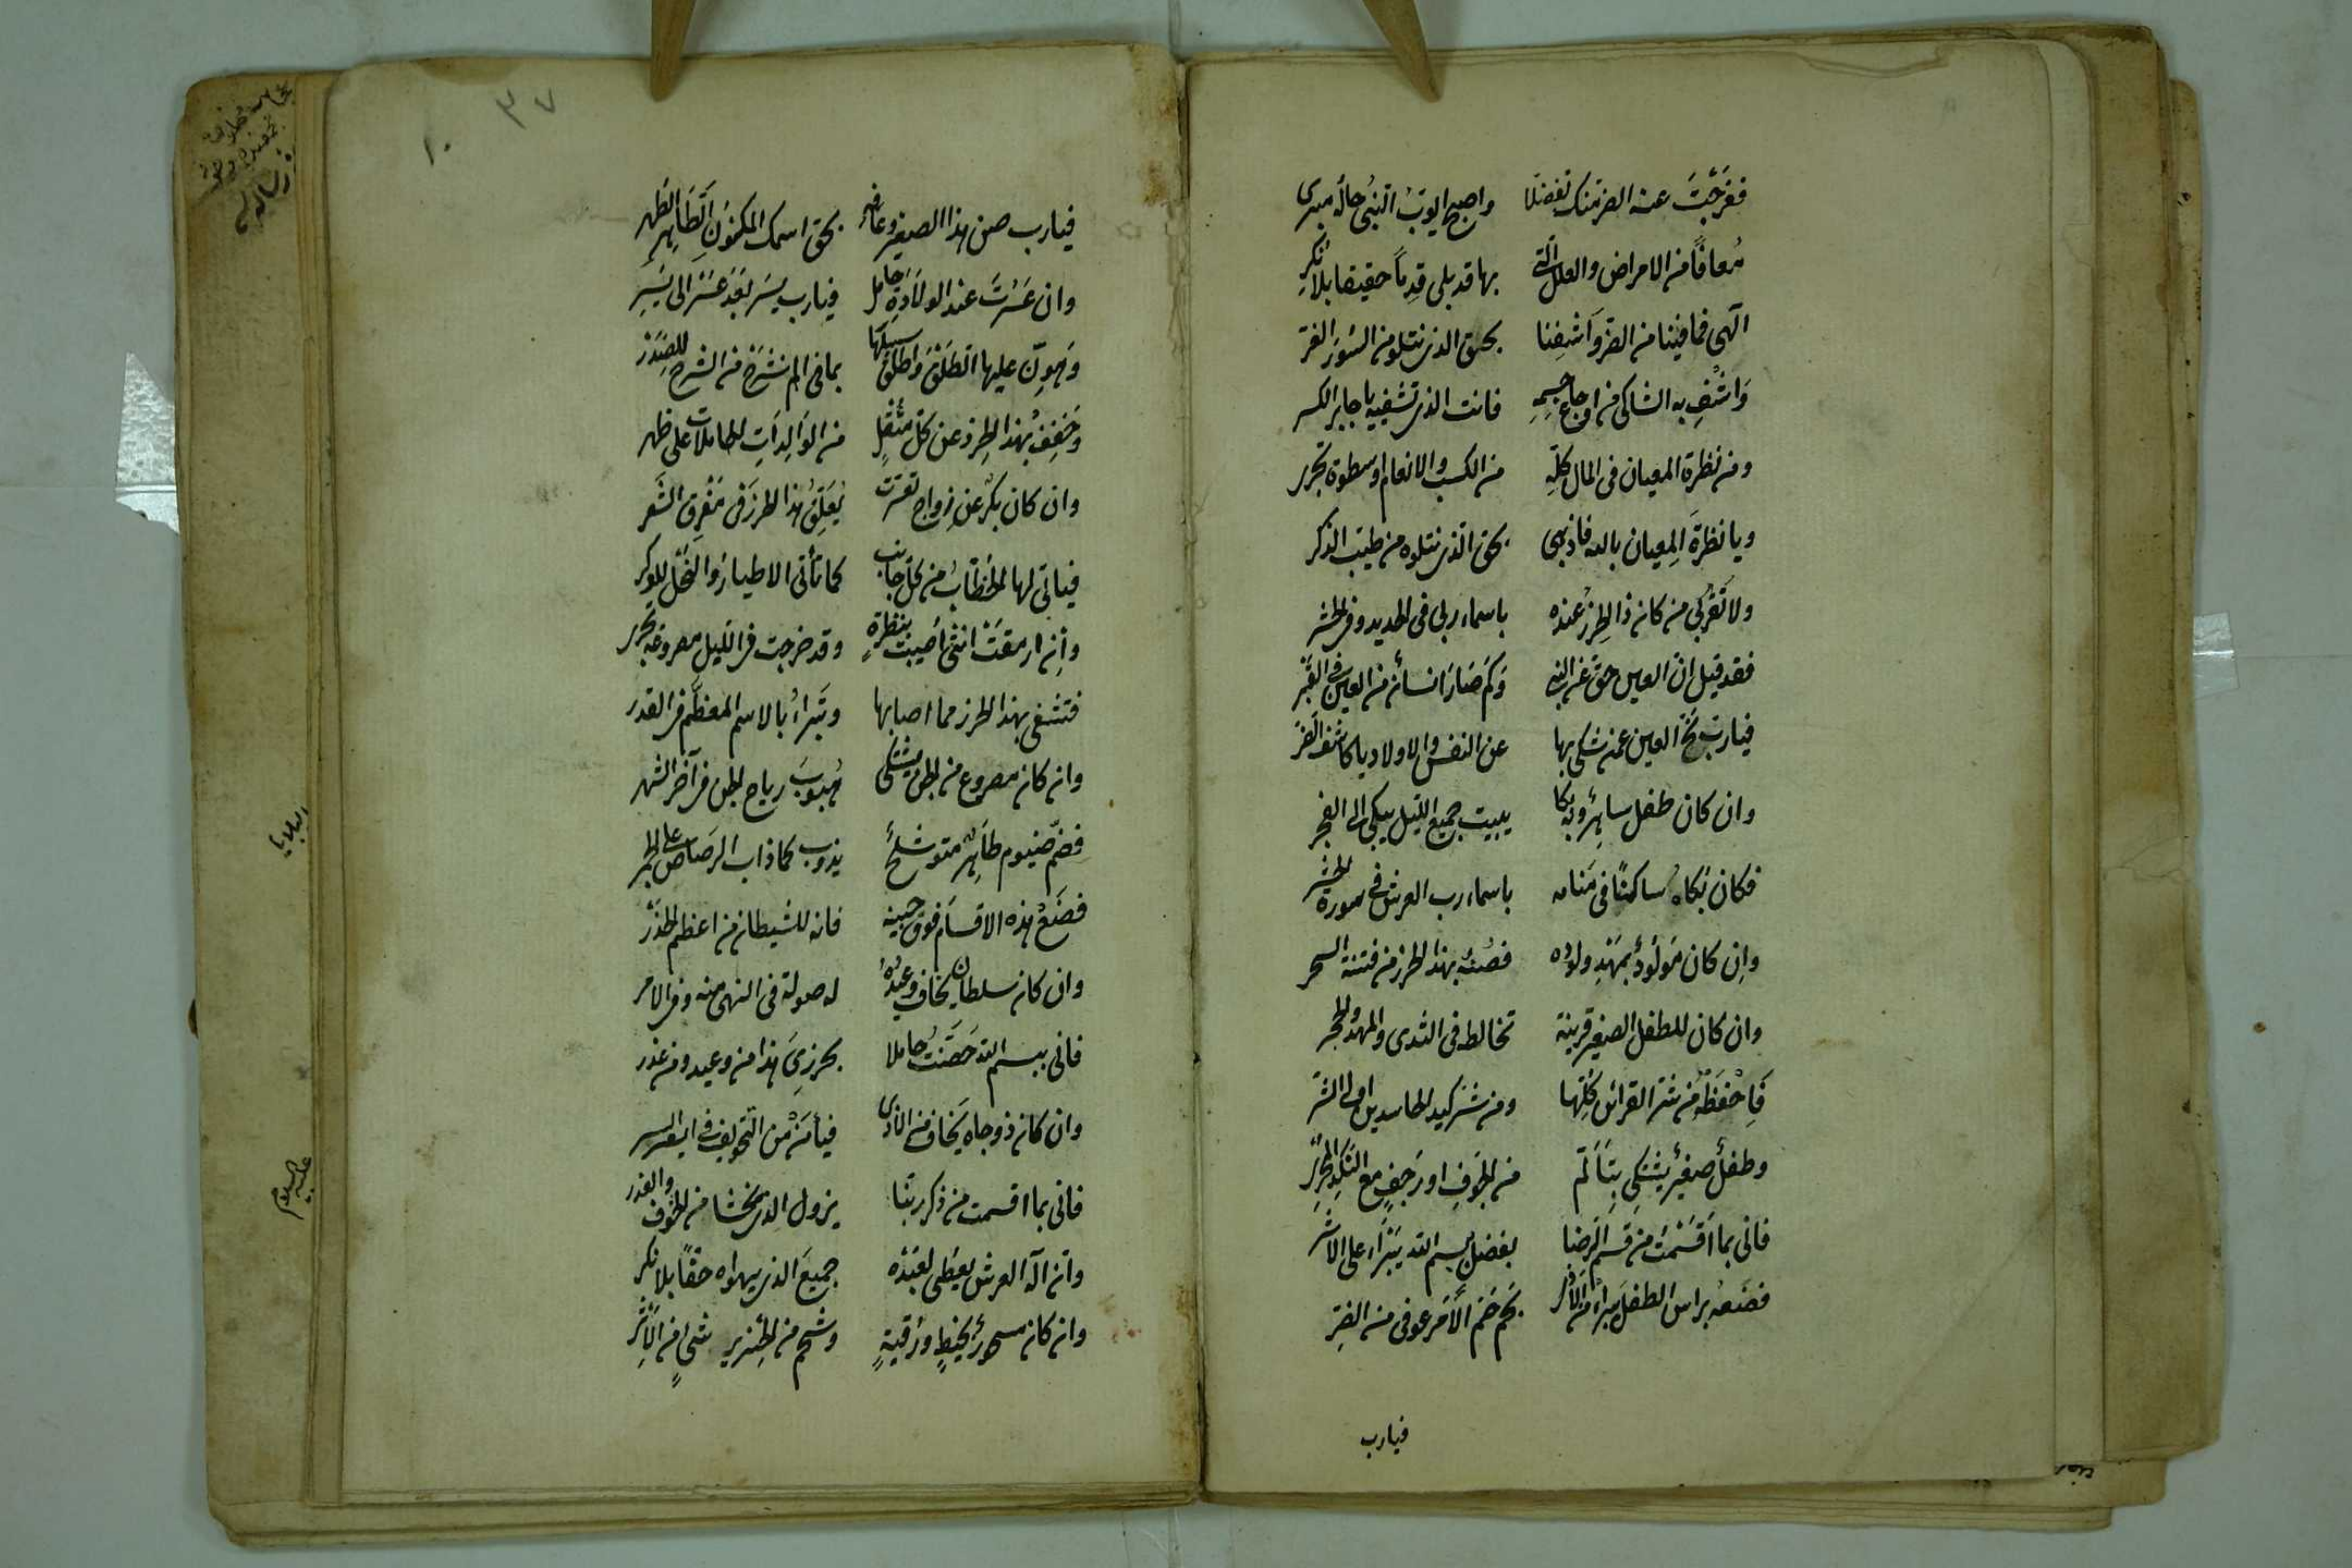 ففرّجتَ عنه الضر منك تفضلا واصبح ايوب النبى حاله مبرى
مُعافًا من الامراض والعلل التى بها قد بلى قِدمًا حقيقا بلا نكرِ
الهى فعافينا من الضر واَشفِنا بحق الذى نتلو من السُور الغر
وَاشفِ به الشاكى من اوجاع جسمِهِ فانت الذى تشفيه يا جابر الكسر
ومن نظرة المعيان فى المال كلّهِ من الكسب والانعام او سطوة تجرى
ويا نظرةَ المِعيان بالله فاذهبى بحق الذى نتلوه من طيب الذكر
ولا تَقرُبى من كان ذا الحِرز عنده باسماء ربى فى الحديد وفى الحشر
فقد قيل انّ العين حق عن النبى وكم صَارَ انسان من العين فى القبر
فيارب نحّ العين عمن شكى بها عن النفس والاولاد يا كاشف الضر
وان كان طفل ساهِرٌ وبه بكا يبيت جميع الليل يبكى الى الفجر
فكان بُكاه ساكنًا فى مَنامه باسماء رب العرش فى سورة الحشر
وإن كان مَولُودٌ بمَهْدِ ولوده فصُنه بهذا الحرز من فتنة السحر
وان كان للطفل الصغير قرينة تخالطه فى الثدى والمهد والحجر
فَاِحْفَظْه من شر القرائن كُلِّها ومن شر كيد الحاسدين اولى الشر
وطفلٌ صغيرٌ يشتكى بِتَألّم من الجَوفِ او رَجفٍ مع النكد المجرِ
فانى بما اَقسَمْتَ من قسم الرضا بفضل بسم الله يَبْرَاء على الاثر
فضَعه براس الطفل يبرأ من الاذى بحم حُمَّ الاَمر عوفى من الضرِ
فيارب
٣٧
١٠
فيارب صن هذا الصغير وعافه بحق اسمك المكنونِ الطَاهِر الطُهر
وان عَسُرتَ عند الولاَدةِ حامل فيارب يسر بَعدَ عُسْر الى يُسْرِ
وَهوِّن عليها الطَلقَ واَطلق سبيلَها بما فى الم نشرح من الشرح للصَدْر
وَخَفِف بهذا الحِرز عن كل مثقلٍ من الوَالِدَاتِ الحاملات على ظهر
وان كان بكر عن زواج تعسرت يُعَلّق هذا الحرز فى مَفْرِق الشَعر
فياتى لها الخُطّابُ من كل جانب كما تأتى الاطيارُ والنحل للوكر
وإن ارمقَتْ انثى اُصيبت بنظرةٍ وقد خرجت فى الليل مصروعة تجرى
فتشفى بهذا الحرز مما اصابها وتَبراءُ بالاسم المعظّم فى القدر
وان كان مصروع من الجن يشتكى هُبوبَ رياح الجن فى آخر الشهر
يذوب كما ذاب الرصاص على الجمر
فضَعْ هذه الاقسَام فوق جبينه فانه للشيطان من اعظم الحذر
وان كان سلطان يخاف وعيدُهُ له صولة فى النهى منه وفى الامر
فانى ببسم الله حَصّنتُ حاملا بحرزِىَ هذا من وعيد ومن غدر
وان كان ذو جاه يَخاف من الاذى فيأمَن من التخويف فى ايسر اليسر
فانى بما اقسمت من ذكر ربّنا يزول الذى يخشا من الخوف والغدر
وان اله العرش يعطى لعَبْدُه جميعَ الذى يهواه حقًا بلا نكر
وان كان مسحورٌ بخيطٍ ورُقيةٍ وشحم من الخنزير شىءٍ من الاَثر
البلايا
عليه السلام